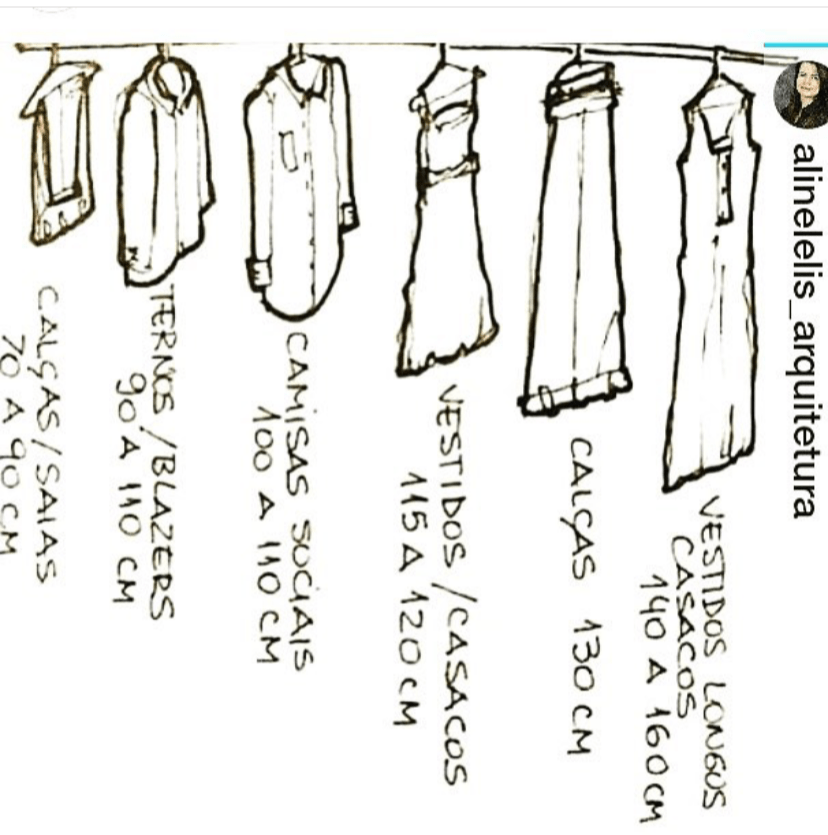 alinelelis_arquitetura
CALÇAS/SAIAS
70 A 90 CM
TERNOS/BLAZERS
90 A 110 CM
CAMISAS SOCIAIS
100 A 110 CM
VESTIDOS/CASACOS
115 A 120 CM
CALÇAS 130 CM
VESTIDOS LONGOS
CASACOS
140 A 160 CM